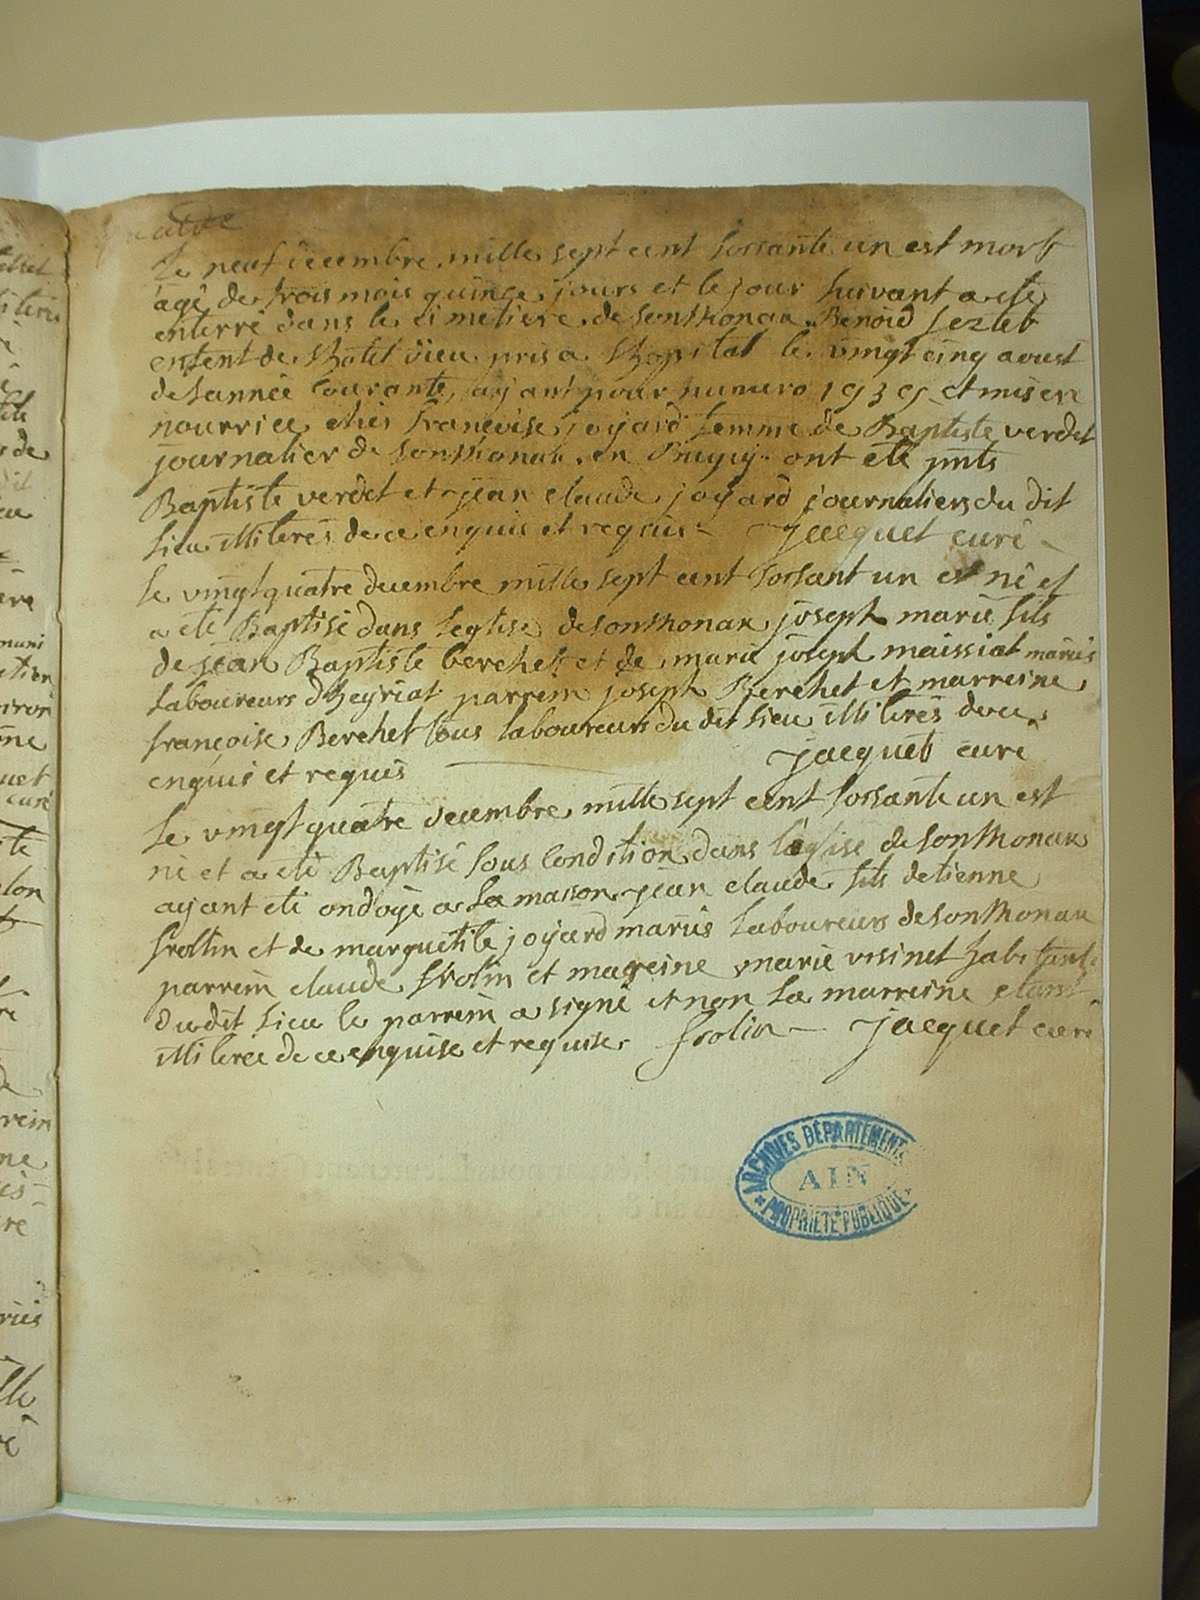 Le neuf decembre mille sept cent sossante un est mort
agé de trois mois quinze jours et le jour suivant a ete
enterré dans le cimetiere de sonthonax Benoid
enfent de hotel dieu pris a lhopital le vingt cinq aoust
de lannée courante ayant pour numuro 1939 et mis en
nourrice chés francoise joyard femme de Baptiste verdet
journalier de sonthonax en Bugey ont eté pnts
Baptiste verdet et jean claude joyard journaliers du dit
lieu illiterés de ce enquis et requis Jacquet curé
le vingt quatre decembre mille sept cent sossant un est né et
a eté Baptisé dans leglise de sonthonax joseph marie fils
de jean Baptiste berchet et de marie joseph maissiat mariés
laboureurs dheyriat parrein joseph Berchet et marreine
françoise Berchet tous laboureurs du dit lieu illiterés de ce
enquis et requis jacquet curé
Le vingt quatre decembre mille sept cent sossante un est
né et a eté Baptisé sous condition dans léglise de sonthonax
ayant eté ondoyé a la maison jean claude fils detienne
frollin et de marguetite joyard mariés laboureurs de sonthonax
parrein claude frolin et mareine marie visinet habitant
du dit lieu le parrein a signé et non la marreine etant
illiterée de ce enquise et requise frolin Jacquet curé
ARCHIVES DÉPARTEMENT
AIN
PROPRIÉTÉ PUBLIQUE